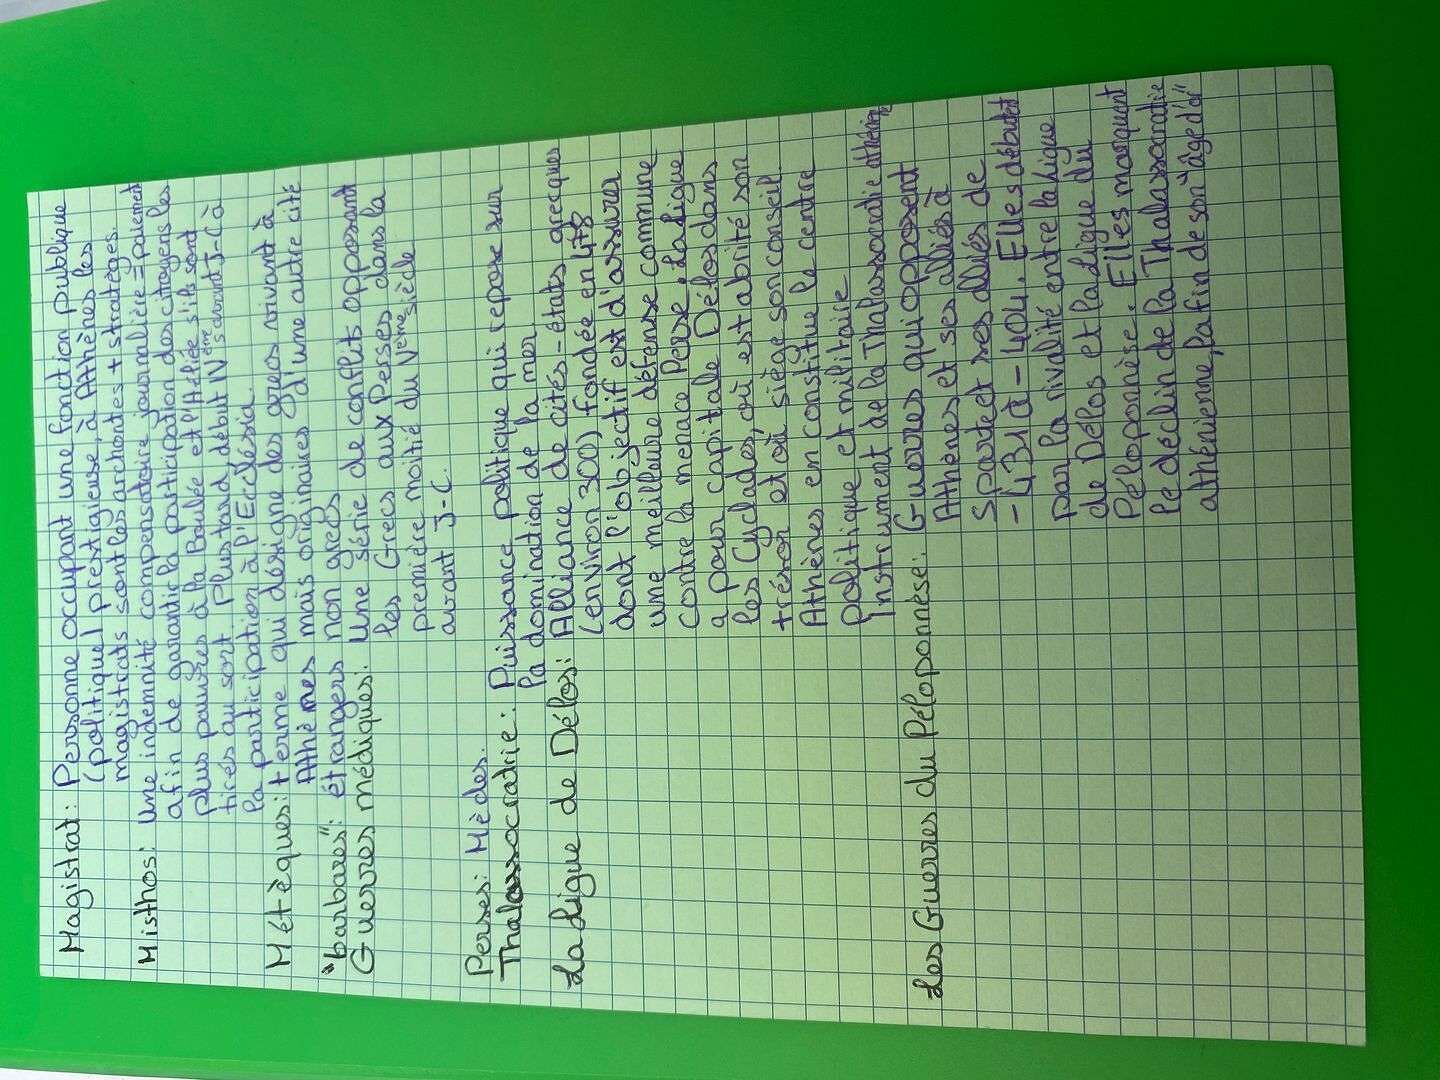 Magistrat : Personne occupant une fonction publique
(politique) prestigieuse, à Athènes les
magistrats sont les archontes + stratèges.
Misthos : une indemnité compensatoire journalière = paiement
afin de garantir la participation des citoyens les
plus pauvres à la Boulée et l'Héliée s'ils sont
tirés au sort. Plus tard, début IVème s avant J-C à
la participation à l'Ecclésia.
Métèques : terme qui désigne des grecs vivant à
Athènes mais originaires d'une autre cité
"barbares" : étrangers non grecs
Guerres médiques : Une série de conflits opposant
les Grecs aux Perses dans la
première moitié du Vème siècle
avant J-C.
Perses : Mèdes.
Thalassocratie : Puissance politique qui repose sur
la domination de la mer
La Ligue de Délos : Alliance de cités-états grecques
(environ 300) fondée en 478
dont l'objectif est d'assurer
une meilleure défense commune
contre la menace Perse, la Ligue
a pour capitale Délos dans
les Cyclades, où est abrité son
trésor et où siège son conseil
Athènes en constitue le centre
politique et militaire
Instrument de la Thalassocratie athénienne
Les Guerres du Péloponnèse : Guerres qui opposent
Athènes et ses alliés à
Sparte et ses alliés de
- 431 à - 404. Elles débutent
par la rivalité entre la ligue
de Délos et la ligue du
Péloponèse. Elles marquent
le déclin de la Thalassocratie
athénienne, la fin de son "âge d'or"